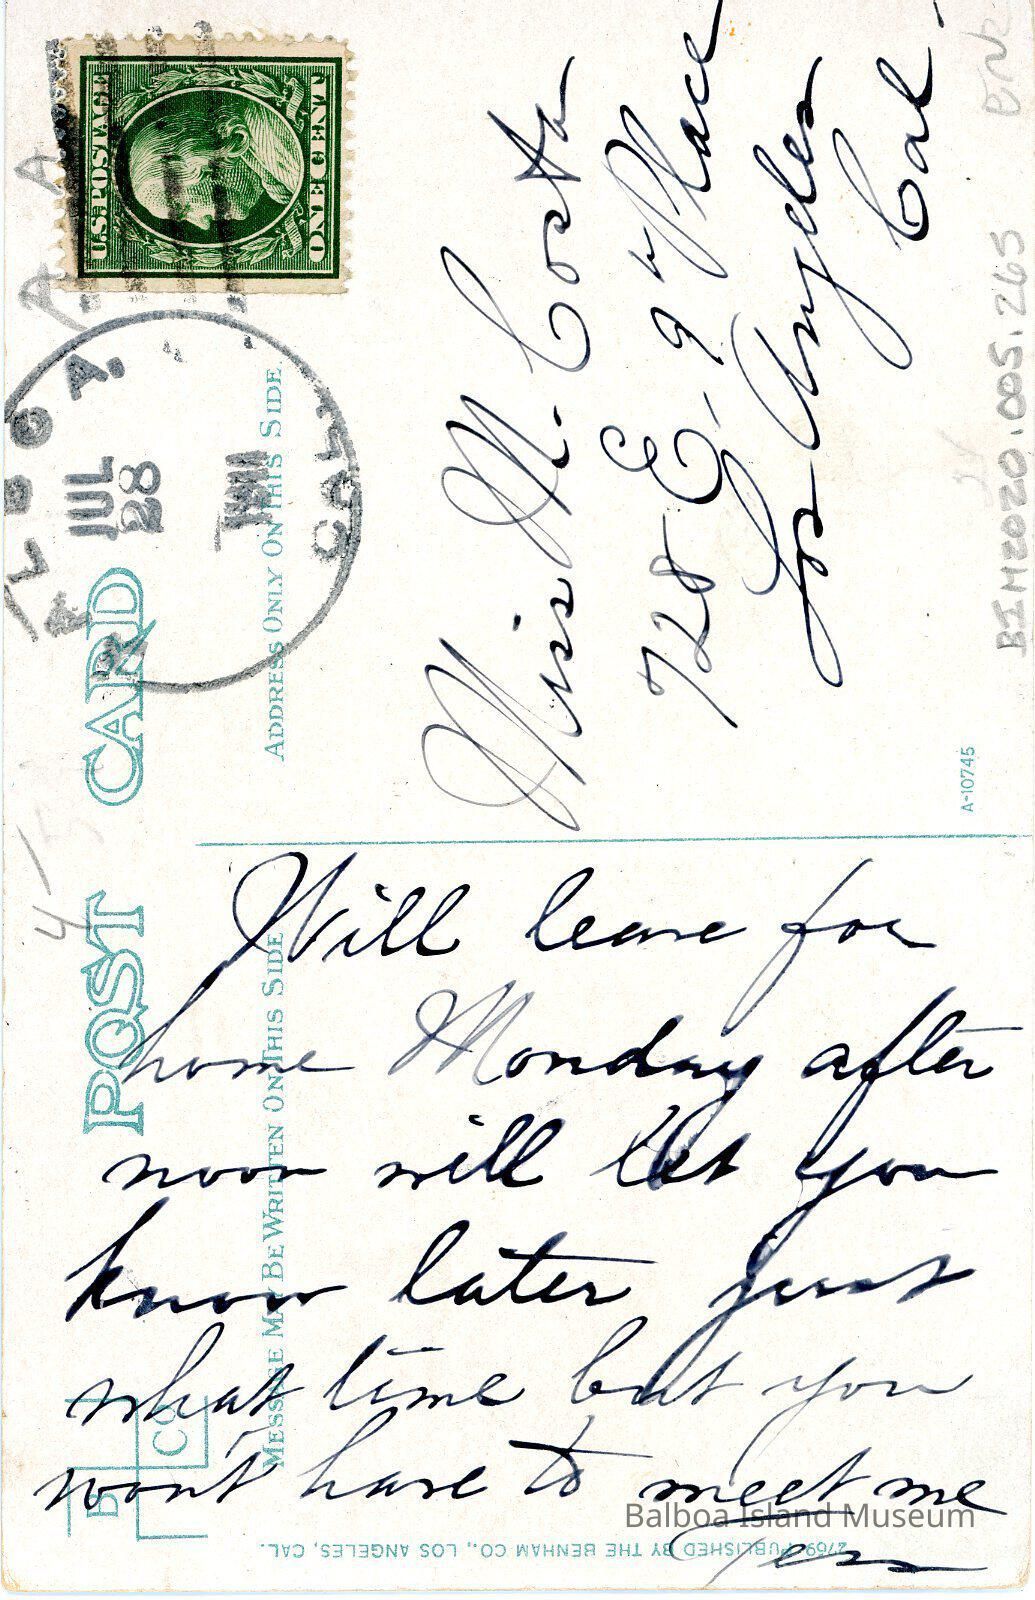 POST CARD
MESSAGE MAY BE WRITTEN ON THIS SIDE
ADDRESS ONLY ON THIS SIDE
U.S. POSTAGE
ONE CENT
BALBOA,
JUL
28
CAL.
Miss M. Costa
728 E. 9th Place
Los Angeles
Cal.
Will leave for
home Monday after
noon will let you
know later just
what time but you
won't have to meet me
Tess
A-10745
2769 PUBLISHED BY THE BENHAM CO., LOS ANGELES, CAL.
B
CO
BIM2020.005.265
Balboa Island Museum